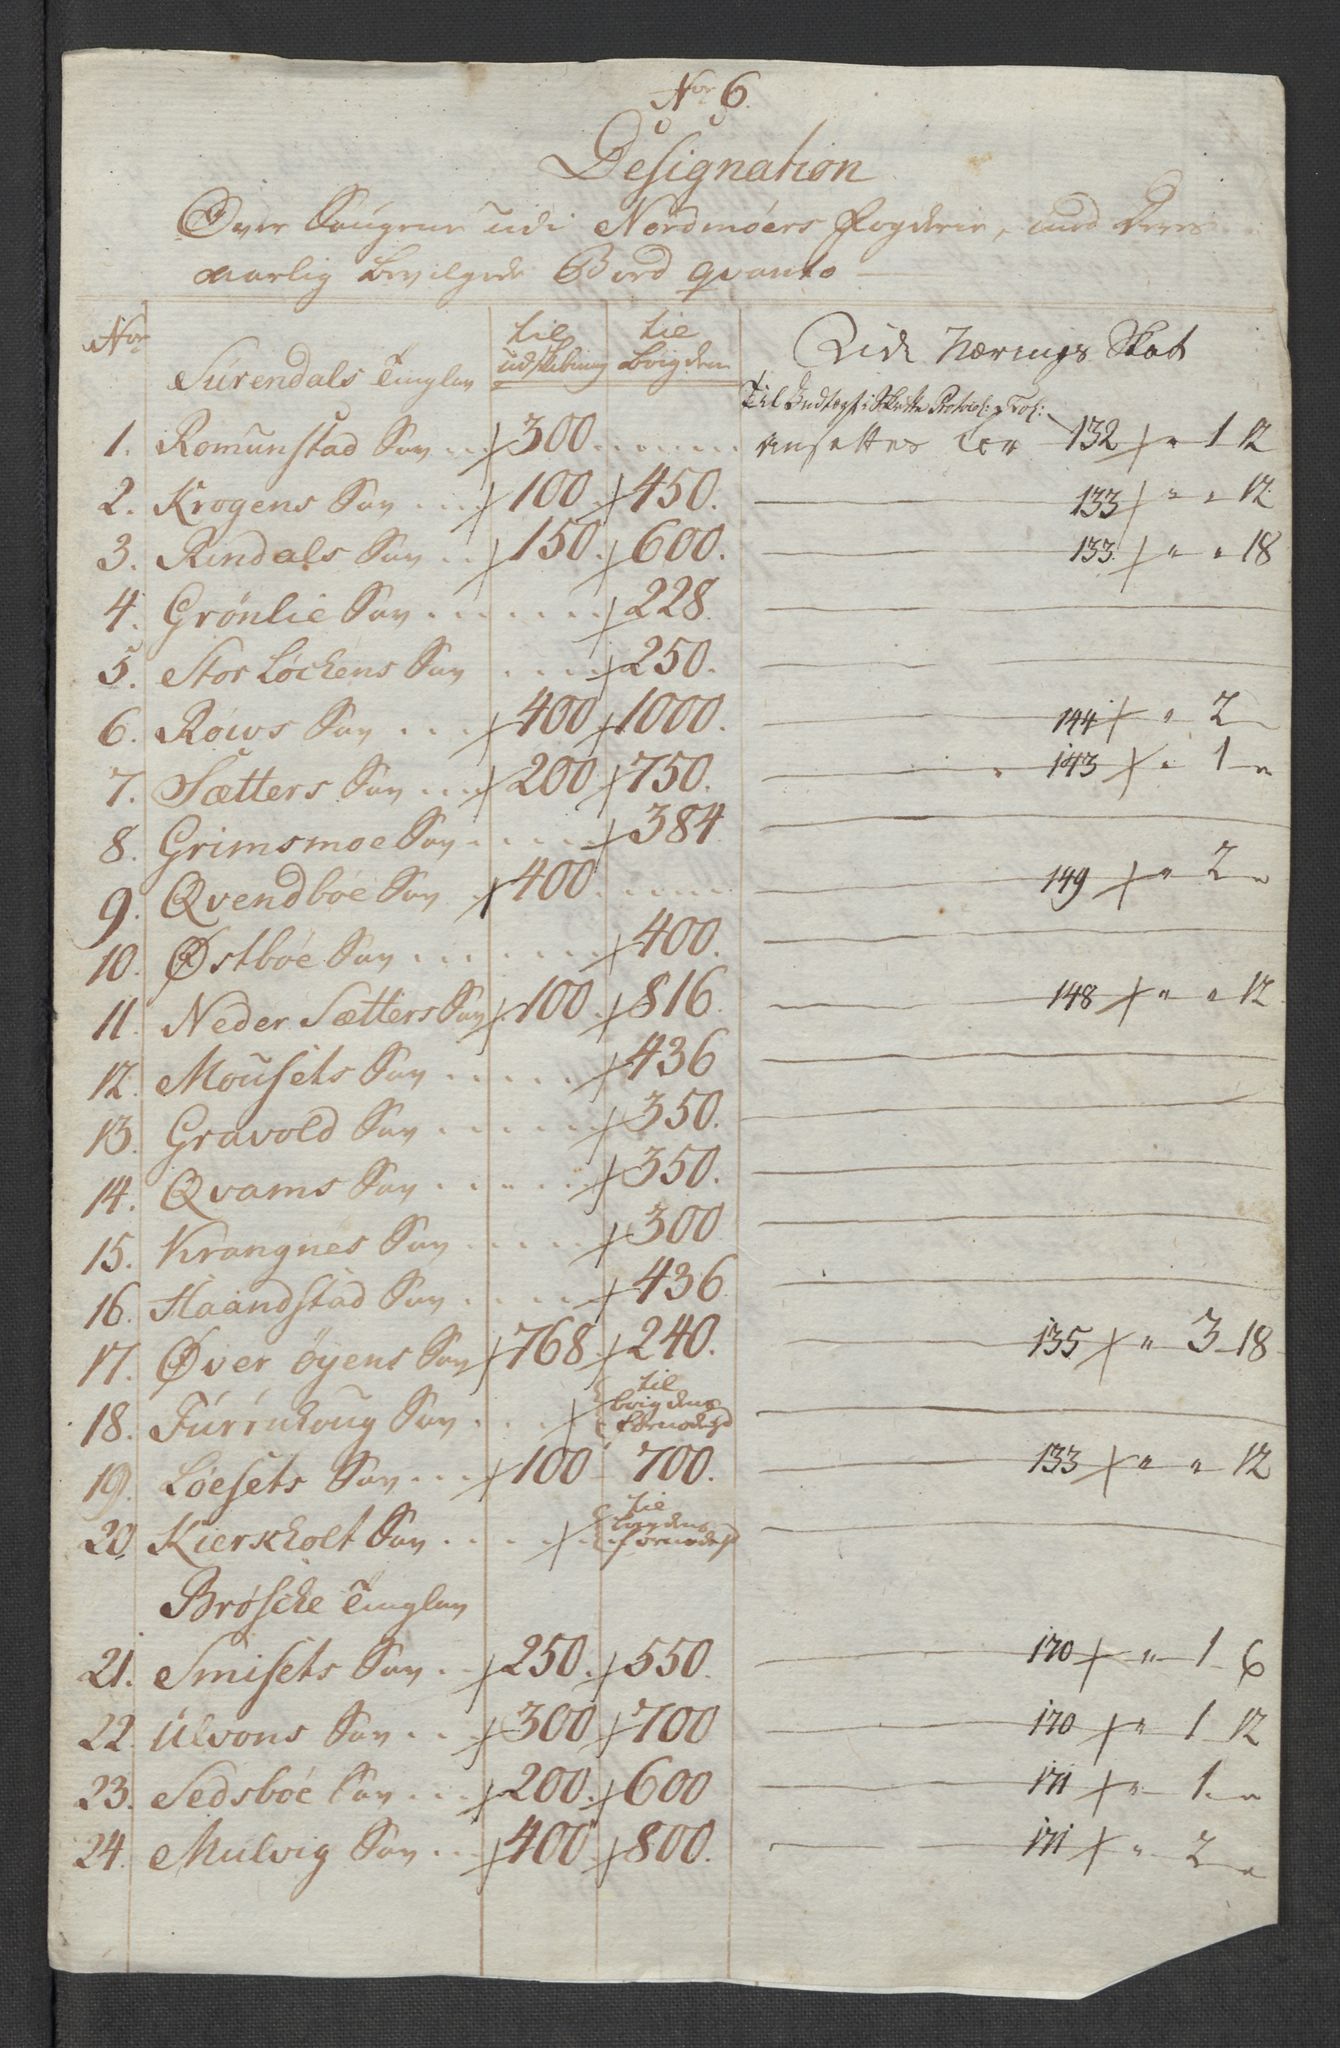 Nor 6.
Designation
Over Saugene udi Nordmöers Fogderie, med Deres
aarlig bevilgede Bord qvanto
Nor Surendals Tinglav til udskibning til bøigden Lide Nærings Skat
Til Indtægt i Skatte Protocol: Fol:
1. Romunstad Sav 300 ansettes for 132 " 1 12
2. Krogens Sav 100 450. 133 " " 12.
3. Rindals Sav 150. 600. 133. " " 18
4. Grönlie Sav 228
5. Stor Löckens Sav 250.
6. Röws Sav 400 1000. 144 " 2
7. Sætters Sav 200 750. 143 " 1 "
8. Grimsmoe Sav 384
9. Qvendböe Sav 400 149 " 2 "
10. Østböe Sav 400.
11. Neder Sætters Sav 100 816. 148 " " 12
12. Mousets Sav 436
13. Gravold Sav 350.
14. Qvams Sav 350.
15. Krangnes Sav 300
16. Haandstad Sav 436
17. Øver öyens Sav 768 240. 135 " 3 18
18. Furruhoug Sav til bøigdens fornødenhed
19. Löesets Sav 100 700. 133 " " 12
20 Kierkholt Sav til bøigdens fornødenhed
Bröske Tinglav
21. Smisets Sav 250. 550. 170 " 1 6
22. Ulvons Sav 300 700 170 " 1 12
23. Sedsböe Sav 200. 600 171 " 1. "
24. Mulvig Sav 400 800. 171 " 2 "